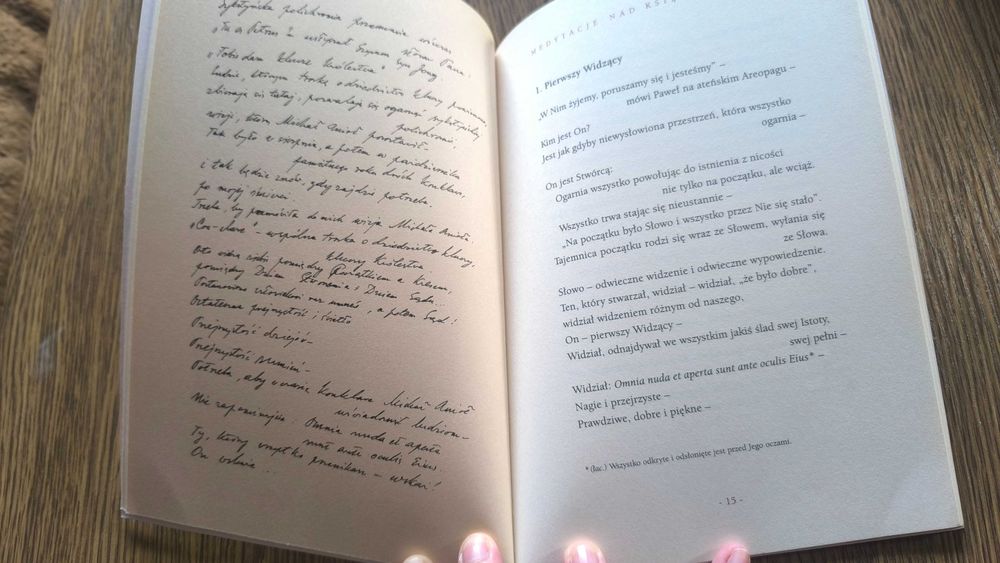 Sykstyńska polichromia przemówi wówczas
„Tu es Petrus” – usłyszał Szymon syn Jony.
„Tobie dam klucze Królestwa”.
ludzie, którym troskę o dziedzictwo kluczy powierzono
zbierają się tutaj, pozwalają się ogarnąć sykstyńskiej
polichromii,
wizji, którą Michał Anioł pozostawił.
Tak było w sierpniu, a potem w październiku
pamiętnego roku dwóch konklaw,
i tak będzie znów, gdy zajdzie potrzeba,
po mojej śmierci.
Trzeba, by przemówiła do nich wizja Michała Anioła.
„Con-clave” – wspólna troska o dziedzictwo kluczy,
kluczy Królestwa.
Oto widzą siebie pomiędzy Początkiem a Kresem,
pomiędzy Dniem Stworzenia i Dniem Sądu...
Postanowiono człowiekowi raz umrzeć, a potem Sąd!
Ostateczna przejrzystość i światło
Przejrzystość dziejów –
Przejrzystość sumień –
Potrzeba, aby w czasie konklawe Michał Anioł
uświadomił ludziom –
Nie zapominajcie: Omnia nuda et aperta
sunt ante oculis Eius.
Ty, który wszystko przenikasz – wskaż!
On wskaże...
MEDYTACJE NAD
1. Pierwszy Widzący
„W Nim żyjemy, poruszamy się i jesteśmy” –
mówi Paweł na ateńskim Areopagu –
Kim jest On?
Jest jak gdyby niewysłowiona przestrzeń, która wszystko
ogarnia –
On jest Stwórcą:
Ogarnia wszystko powołując do istnienia z nicości
nie tylko na początku, ale wciąż.
Wszystko trwa stając się nieustannie –
„Na początku było Słowo i wszystko przez Nie się stało”.
Tajemnica początku rodzi się wraz ze Słowem, wyłania się
ze Słowa.
Słowo – odwieczne widzenie i odwieczne wypowiedzenie.
Ten, który stwarzał, widział – widział, „że było dobre”,
widział widzeniem różnym od naszego,
On – pierwszy Widzący –
Widział, odnajdywał we wszystkim jakiś ślad swej Istoty,
swej pełni –
Widział: Omnia nuda et aperta sunt ante oculis Eius* –
Nagie i przejrzyste –
Prawdziwe, dobre i piękne –
* (łac.) Wszystko odkryte i odsłonięte jest przed Jego oczami.
- 15 -